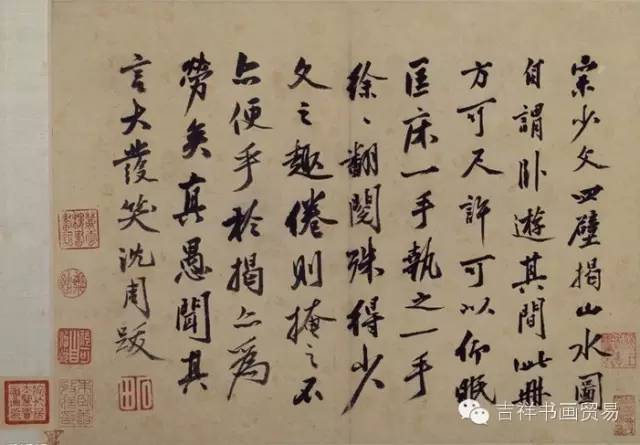 宗少文四壁揭山水圖
自謂卧遊其間此冊
方可尺許可以仰眠
匡床一手執之一手
徐〻翻閱殊得少
文之趣倦則掩之不
亦便乎於揭亦為
勞矣真愚聞其
言大發笑沈周跋
吉祥书画贸易